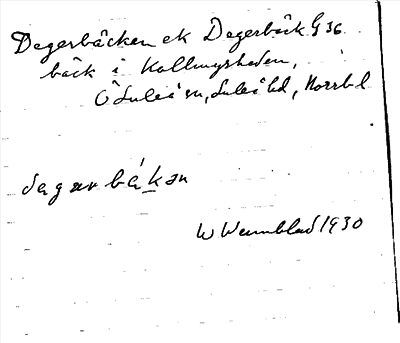 Degerbäcken ek Degerbäck G 36
bäck i Kallmyrheden,
Ö Luleå sn, Luleå hd, Norrb l
degərbäkən
W Wennblad 1930